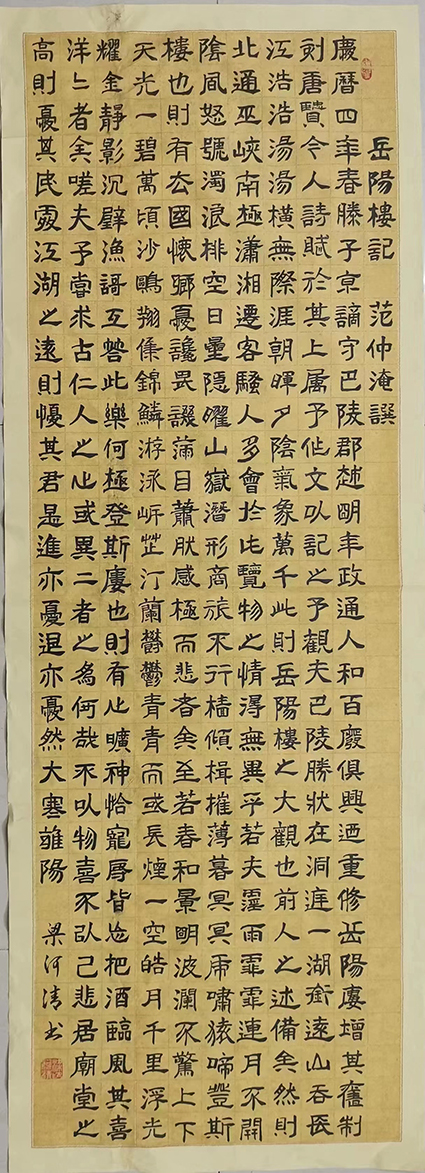 岳陽樓記 范仲淹譔
慶曆四年春滕子京謫守巴陵郡越明年政通人和百廢俱興迺重修岳陽廔增其舊制
刻唐賢今人詩賦於其上属予作文以記之予觀夫巴陵勝狀在洞庭一湖銜遠山吞長
江浩浩湯湯橫無際涯朝暉夕陰氣象萬千此則岳陽樓之大觀也前人之述備矣然則
北通巫峽南極瀟湘遷客騷人多會於此覽物之情得無異乎若夫霪雨霏霏連月不開
陰風怒號濁浪排空日星隱曜山嶽潛形商旅不行檣傾楫摧薄暮冥冥虎嘯猿啼登斯
樓也則有去國懷鄉憂讒畏譏滿目蕭然感極而悲者矣至若春和景明波瀾不驚上下
天光一碧萬頃沙鷗翔集錦鱗游泳岸芷汀蘭鬱鬱青青而或長煙一空皓月千里浮光
耀金靜影沉璧漁謌互答此樂何極登斯廔也則有心曠神怡寵辱皆忘把酒臨風其喜
洋〻者矣嗟夫予嘗求古仁人之心或異二者之為何哉不以物喜不以己悲居廟堂之
高則憂其民處江湖之遠則憂其君是進亦憂退亦憂然大寒雒陽 梁河清书